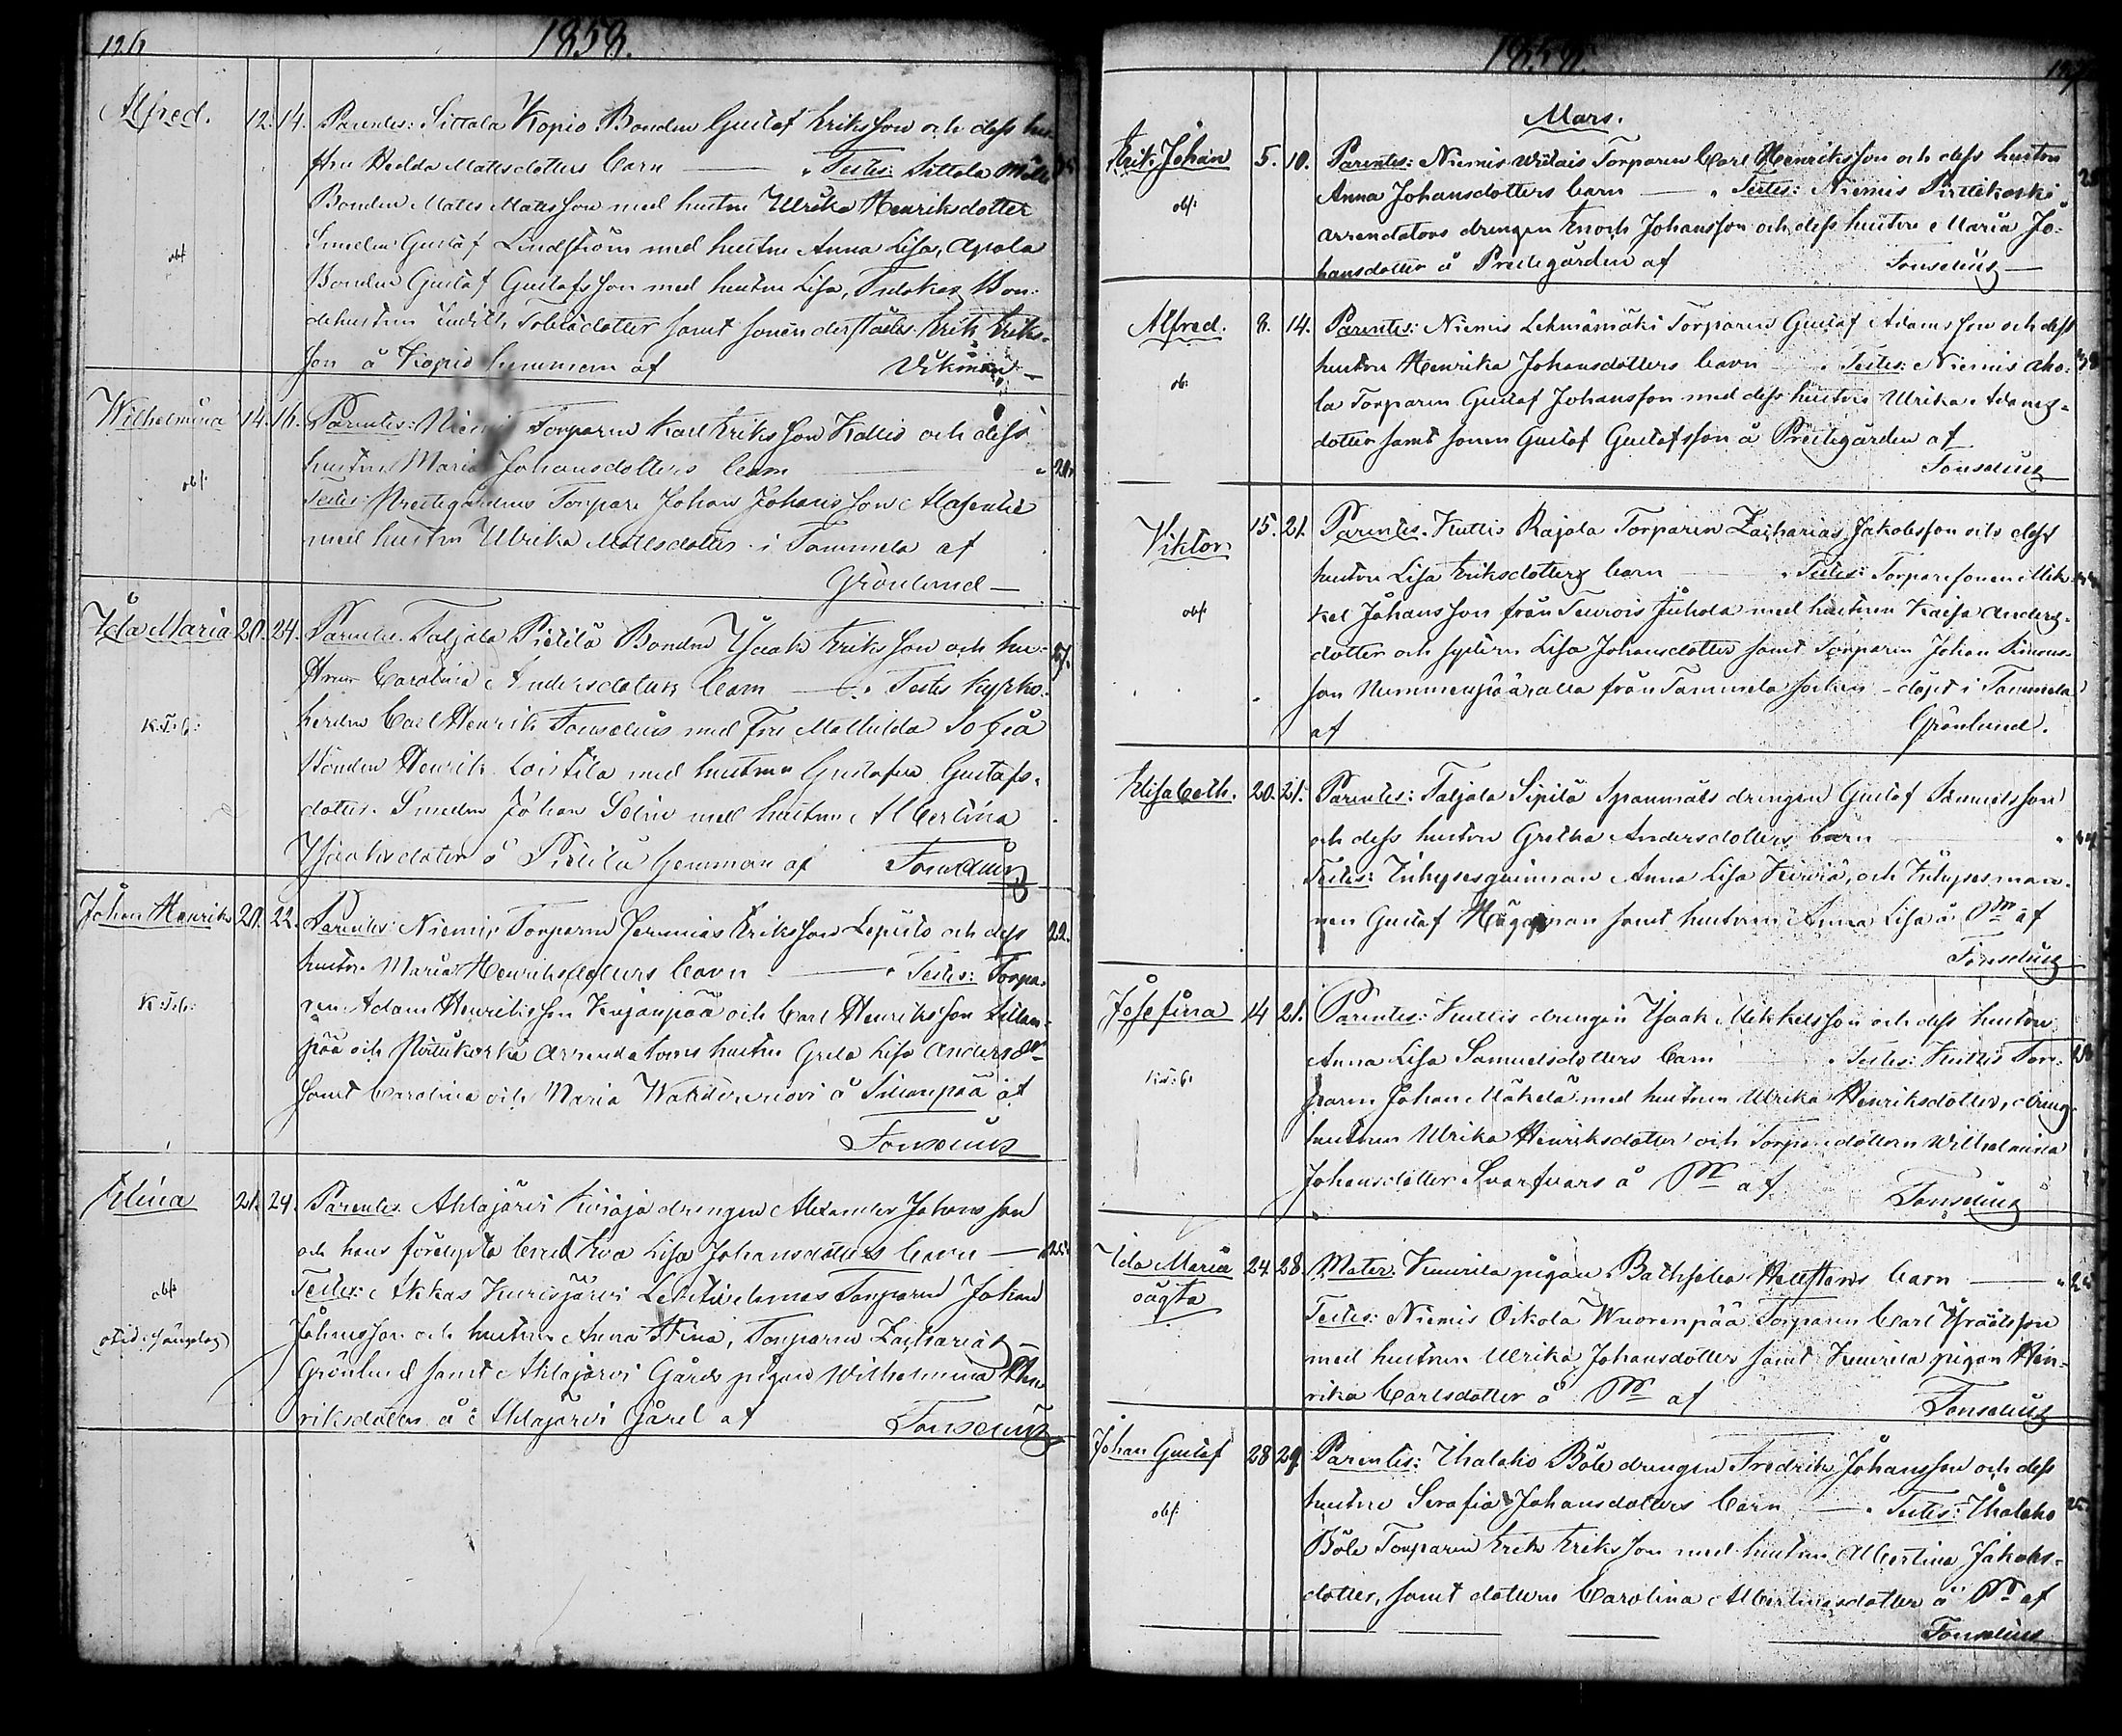 126
1858.
Alfred. 12. 14. Parentes: Sittala Kopio Bonden Gustaf Eriksson och dess hu-
stru Hedda Mattsdotters barn — Testes: Sittala
Bonden Matts Mattsson med hustru Ulrika Henriksdotter
obs Smeden Gustaf Lindström med hustru Anna Lisa,
Bonden Gustaf Gustafsson med hustru Lisa, Bon-
dehustrun Tobiasdotter samt sonen derstädes Erik Eriks-
son å Kopio hemman af Vikman —
Wilhelmina 14. 16. Parentes: Niemis Torparen Karl Eriksson Kallio och dess
hustru Maria Johansdotters barn
obs: Testes: Prestegårdens Torpare Johan Johansson
med hustru Ulrika Mattsdotter i Tammela af
Grönlund —
Ida Maria 20. 24. Parentes. Taljala Pietilä Bonden Isaak Eriksson och hu-
strun Carolina Andersdotters barn — Testes Kyrko-
herden Carl Henrik Fonselius med Fru Mathilda Sofia
K.T.b: Bonden Henrik Loistila med hustrun Gustafva Gustafs-
dotter. Smeden Johan Solin med hustrun Albertina
Isaaksdotter å Pietilä hemman af Fonselius
Johan Henrik 20. 22. Parentes: Niemis Torparen Jeremias Eriksson och dess 22.
hustru Maria Henriksdotters barn — Testes: Torpa-
K.T.b: ren Adam Henriksson och Carl Henriksson Sillan-
pää och Arrendatorns hustru Greta Lisa Anders dr
samt Carolina och Maria å Sillanpää af
Fonselius
Elina 21. 24. Parentes. Ahlajärvi drengen Alexander Johansson
och hans Eva Lisa Johansdotters barn —
obs Testes: Akkas Kurisjärvi Torparen Johan
Johansson och hustrun Anna Stina, Torparen Zacharias
Grönlund samt Ahlajärvi Gårds pigan Wilhelmina Hen-
riksdotter å Ahlajärvi Gård af Fonselius
1858.
127
Mars.
Erik Johan 5. 10. Parentes: Niemis Torparen Carl Henriksson och dess hustru
obs: Anna Johansdotters barn — Testes: Niemis Pirttikoski
arrendatorns drengen Enoch Johansson och dess hustru Maria Jo-
hansdotter å Prestegården af Fonselius —
Alfred. 8. 14. Parentes: Niemis Lehmämäki Torparen Gustaf Adamsson och dess
ob: hustru Henrika Johansdotters barn Testes: Niemis Aho-
la Torparen Gustaf Johansson med dess hustru Ulrika Adams-
dotter samt sonen Gustaf Gustafsson å Prestegården af
Fonselius
Viktor. 15. 21. Parentes. Kuttis Rajala Torparen Zacharias Jakobsson och dess
hustru Lisa Eriksdotters barn Testes: Torparesonen Mik-
obs: kel Johansson från med hustrun Kaisa Anders-
dotter och systern Lisa Johansdotter samt Torparen Johan Simons-
son Nummenpää, alla från Tammela socken - döpt i Tammela
af Grönlund.
Elisabeth. 20. 21. Parentes: Taljala Sipilä Spannmåls drengen Gustaf Samuelsson
och dess hustru Gretha Andersdotters barn
Testes: Inhysesqvinnan Anna Lisa och Inhysesman-
nen Gustaf samt hustrun Anna Lisa å Pr af
Fonselius
Josefina 14 21. Parentes: Kuttis drengen Isaak Mikkelsson och dess hustru
Anna Lisa Samuelsdotters barn Testes: Kuttis Tor-
K.T.b. paren Johan Mäkelä med hustrun Ulrika Henriksdotter, dreng-
hustrun Ulrika Henriksdotter och Torparedottern Wilhelmina
Johansdotter Svarfvars å Pr af Fonselius
Ida Maria 24. 28. Mater. Kuurila pigan Bathseba Hallstens barn —
oägta Testes: Niemis Oikola Wuorenpää Torparen Carl Israelsson
med hustrun Ulrika Johansdotter samt Kuurila pigan Hen-
rika Carlsdotter å Pr af Fonselius
Johan Gustaf 28 29. Parentes: Ihalako Böle drengen Fredrik Johansson och dess
hustru Serafia Johansdotters barn — Testes: Ihalako
obs: Böle Torparen Erik Eriksson med hustrun Albertina Jakobs-
dotter, samt dottren Carolina Albertinasdotter å Pr af
Fonselius